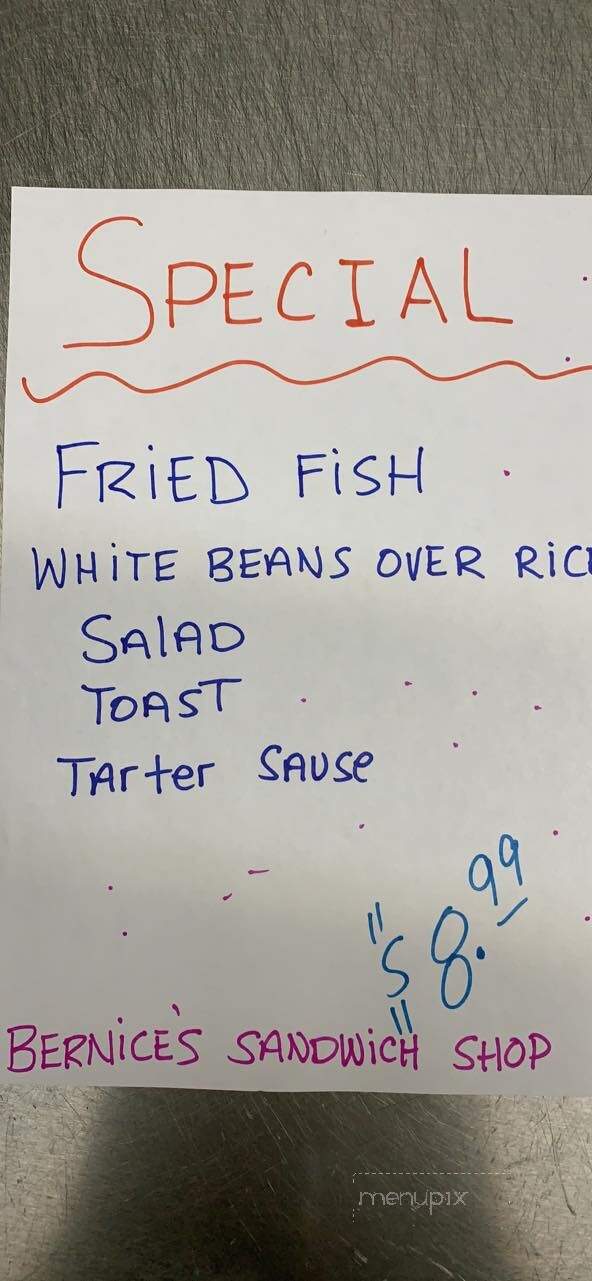 SPECIAL
FRiED FiSH
WHiTE BEANS OVER RiCE
SAlAD
TOAST
TArter SAUSe
$8.99
BERNiCE'S SANDWiCH SHOP
menupix